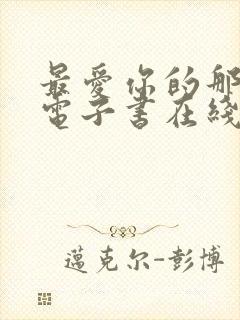 最愛你的那
電子書在綫
邁克尔-彭博